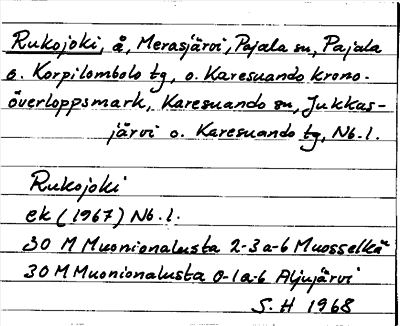 Rukojoki, å, Merasjärvi, Pajala sn, Pajala
o. Korpilombolo tg, o. Karesuando krono-
överloppsmark, Karesuando sn, Jukkas-
järvi o. Karesuando tg, Nb. l.
Rukojoki
ek (1967) Nb. l.
30 M Muonionalusta 2-3 a-b Muosselkä
30 M Muonionalusta 0-1 a-b Aljujärvi
S. H 1968